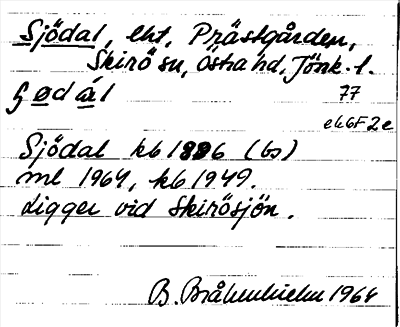 Sjödal, lht, Prästgården,
Skirö sn, Östra hd, Jönk. l.
ʃødɑ̀l 77
ek6F2e
Sjödal kb 1886 (bs)
ml 1964, kb 1949.
Ligger vid Skirösjön.
B. Bråkenhielm 1964